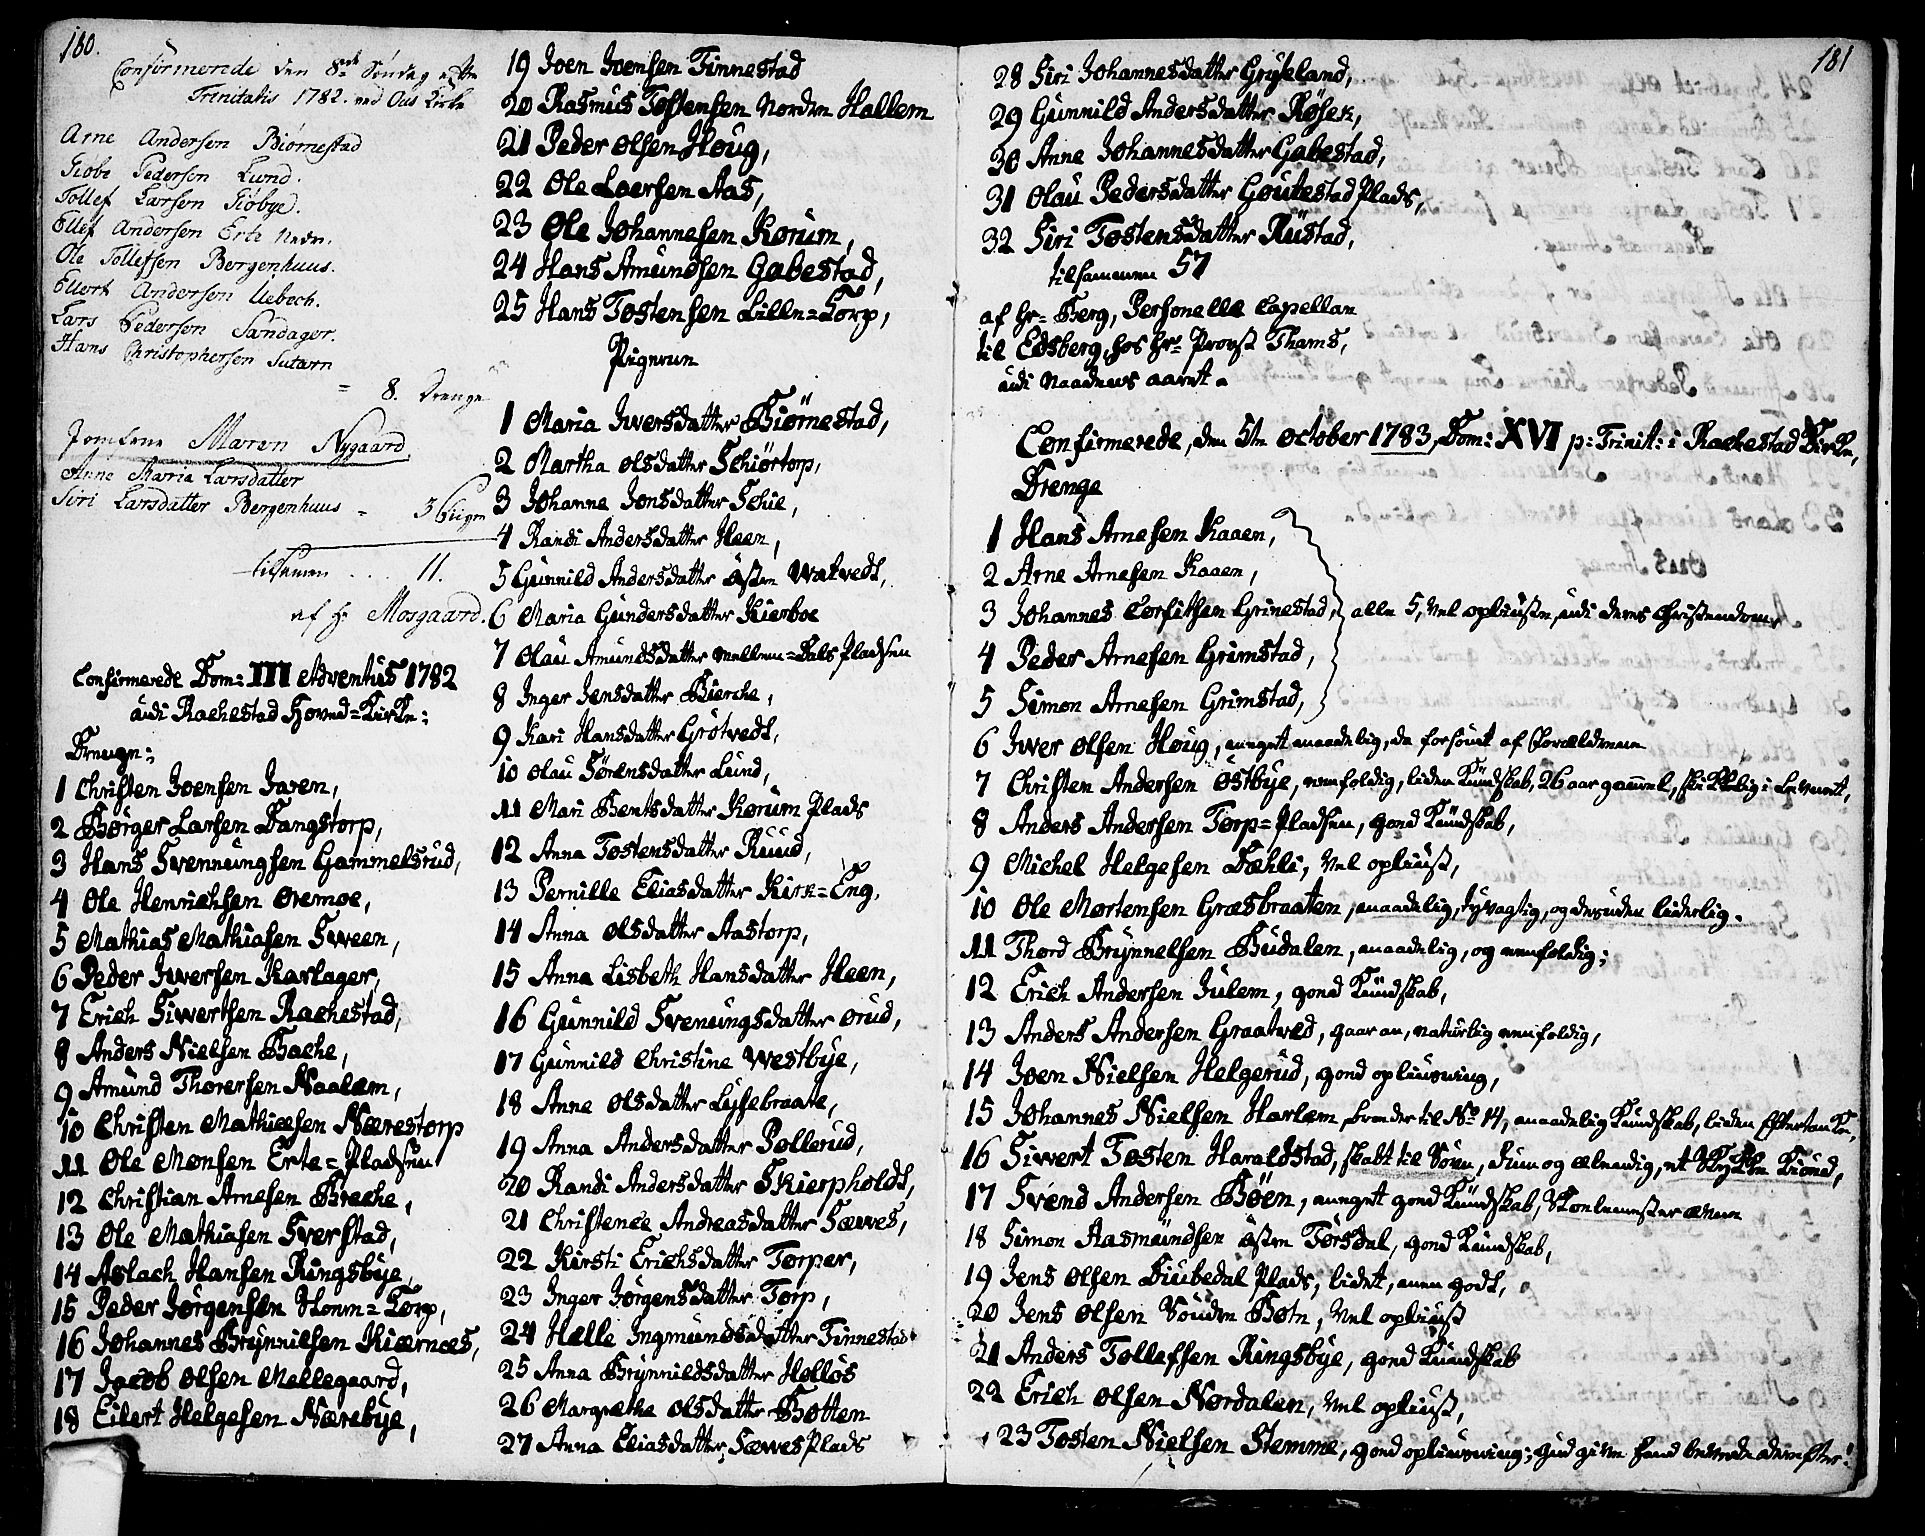 180.
Confirmerede den 8de Søndag efter
Trinitatis 1782. ved Ous Kirke
Arne Andersen Biørnestad
Giøbe Pedersen Lund.
Tollef Larsen Giøbye.
Ellef Andersen Erte Nedr.
Ole Tollefsen Bergenhuus.
Ellert Andersen Ueboch.
Lars Pedersen Sandager.
Hans Christophersen Sutarn
= 8. Drenge
Jomfrue Maren Nygaard
Anne Maria Larsdatter
Siri Larsdatter Bergenhuus = 3 Piiger
tilsamen . . . . 11.
af Hr Mosgaard.
Confirmerede Dom: III Adventus 1782
udi Rachestad Hoved=Kirke:
Drenge:
1 Christen Joensen Joren,
2 Børger Larsen Dangstorp,
3 Hans Svenningsen Gammelsrud,
4 Ole Henrichsen Oremoe,
5 Mathias Mathiasen Sween,
6 Peder Iwersen Karlager,
7 Erich Siwertsen Rachestad,
8 Anders Nielsen Bache,
9 Amund Thorersen Naalem,
10 Christen Mathiesen Nærestorp
11 Ole Monsen Erte=Pladsen
12 Christian Arnesen Breche,
13 Ole Mathiasen Sverstad,
14 Aslach Hansen Ringsbye,
15 Peder Jørgensen Homm=Torp,
16 Johannes Brynnielsen Kiærnæs,
17 Jacob Olsen Mellegaard,
18 Eilert Helgesen Nærebye,
19 Joen Joensen Finnestad
20 Rasmus Tostensen Norden Hallem
21 Peder Olsen Houg,
22 Ole Loersen Aas,
23 Ole Johannesen Korum,
24 Hans Amundsen Gabestad,
25 Hans Tostensen Lille=Torp,
Pigerne
1 Maria Iwersdatter Biørnestad,
2 Martha Olsdatter Schiørtorp,
3 Johanne Jonsdatter Schie,
4 Randi Andersdatter Heen,
5 Gunnild Andersdatter Østen Watvedt,
6 Maria Gundersdatter Kierboe
7 Olau Amundsdatter Mellem=Dals Pladsen
8 Inger Jensdatter Bierche,
9 Kari Hansdatter Grøtvedt,
10 Olau Sørensdatter Lund,
11 Mari Bentsdatter Korum Plads
12 Anna Tostensdatter Ruud,
13 Pernille Eliasdatter Kirk=Eng,
14 Anna Olsdatter Aastorp,
15 Anna Lisbeth Hansdatter Heen,
16 Gunnild Sveningsdatter Orud,
17 Gunnild Christine Westbye,
18 Anne Olsdatter Lysebraate,
19 Anna Andersdatter Pollerud,
20 Randi Andersdatter Skierpholdt,
21 Christence Andreasdatter Sæwes,
22 Kirsti Erichsdatter Torper,
23 Inger Jørgensdatter Torp,
24 Helle Ingmundsdatter Finnestad
25 Anna Brynnildsdatter Helløs
26 Margrethe Olsdatter Botten
27 Anna Eliasdatter Sæwes Plads
181
28 Siri Johannesdatter Gryseland,
29 Gunnild Andersdatter Røsek,
30 Anne Johannesdatter Gabestad,
31 Olau Pedersdatter Goutestad Plads,
32 Siri Tostensdatter Rustad,
tilsammen 57
af Hr= Berg, Personelle Capellan
til Edsberg, hos Hr= Provst Thams,
udi Naadens aaret.
Confirmerede, den 5te October 1783, Dom: XVI p: Trinit: i Rachestad Kirke,
Drenge
1 Hans Arnesen Kaaen,
2 Arne Arnesen Kaaen,
3 Johannes Corfitsen Grinestad, alle 5, vel oplyuste, udi deres Christendom,
4 Peder Arnesen Grimstad,
5 Simon Arnesen Grimstad,
6 Iwer Olsen Houg, meget maadelig, da forsømt af Forældrene
7 Christen Andersen Østbye, eenfoldig, liden Kundskab, 26 aar gammel, skikkelig i Levnet,
8 Anders Andersen Torp=Pladsen, goed Kundskab,
9 Michel Helgesen Dæhli, vel oplyust,
10 Ole Mortensen Græsbraaten, maadelig, tyvagtig, og desuden liderlig.
11 Thord Brynnelsen Budalen, maadelig, og eenfoldig;
12 Erich Andersen Julem, goed Kundskab,
13 Anders Andersen Graatved, gaar an, naturlig eenfoldig,
14 Joen Nielsen Helgerud, goed oplyusning,
15 Johannes Nielsen Harlem, broder til No 14, maadelig Kundskab, liden Eftertanke,
16 Siwert Tosten Haraldstad, skabt til Søvn, dum og elendig, et stykke Kiød,
17 Svend Andersen Bøen, meget goed Kundskab, Skoelemester
18 Simon Aasmundsen Østen Tørsdal, goed Kundskab,
19 Jens Olsen Diubedal Plads, lidet, men godt,
20 Jens Olsen Sønden Botn, vel oplyust
21 Anders Tollefsen Ringsbye, goed Kundskab
22 Erich Olsen Nordalen, vel oplyust,
23 Tosten Nielsen Stemme, goed oplyusning; Gud give hand levede derefter!